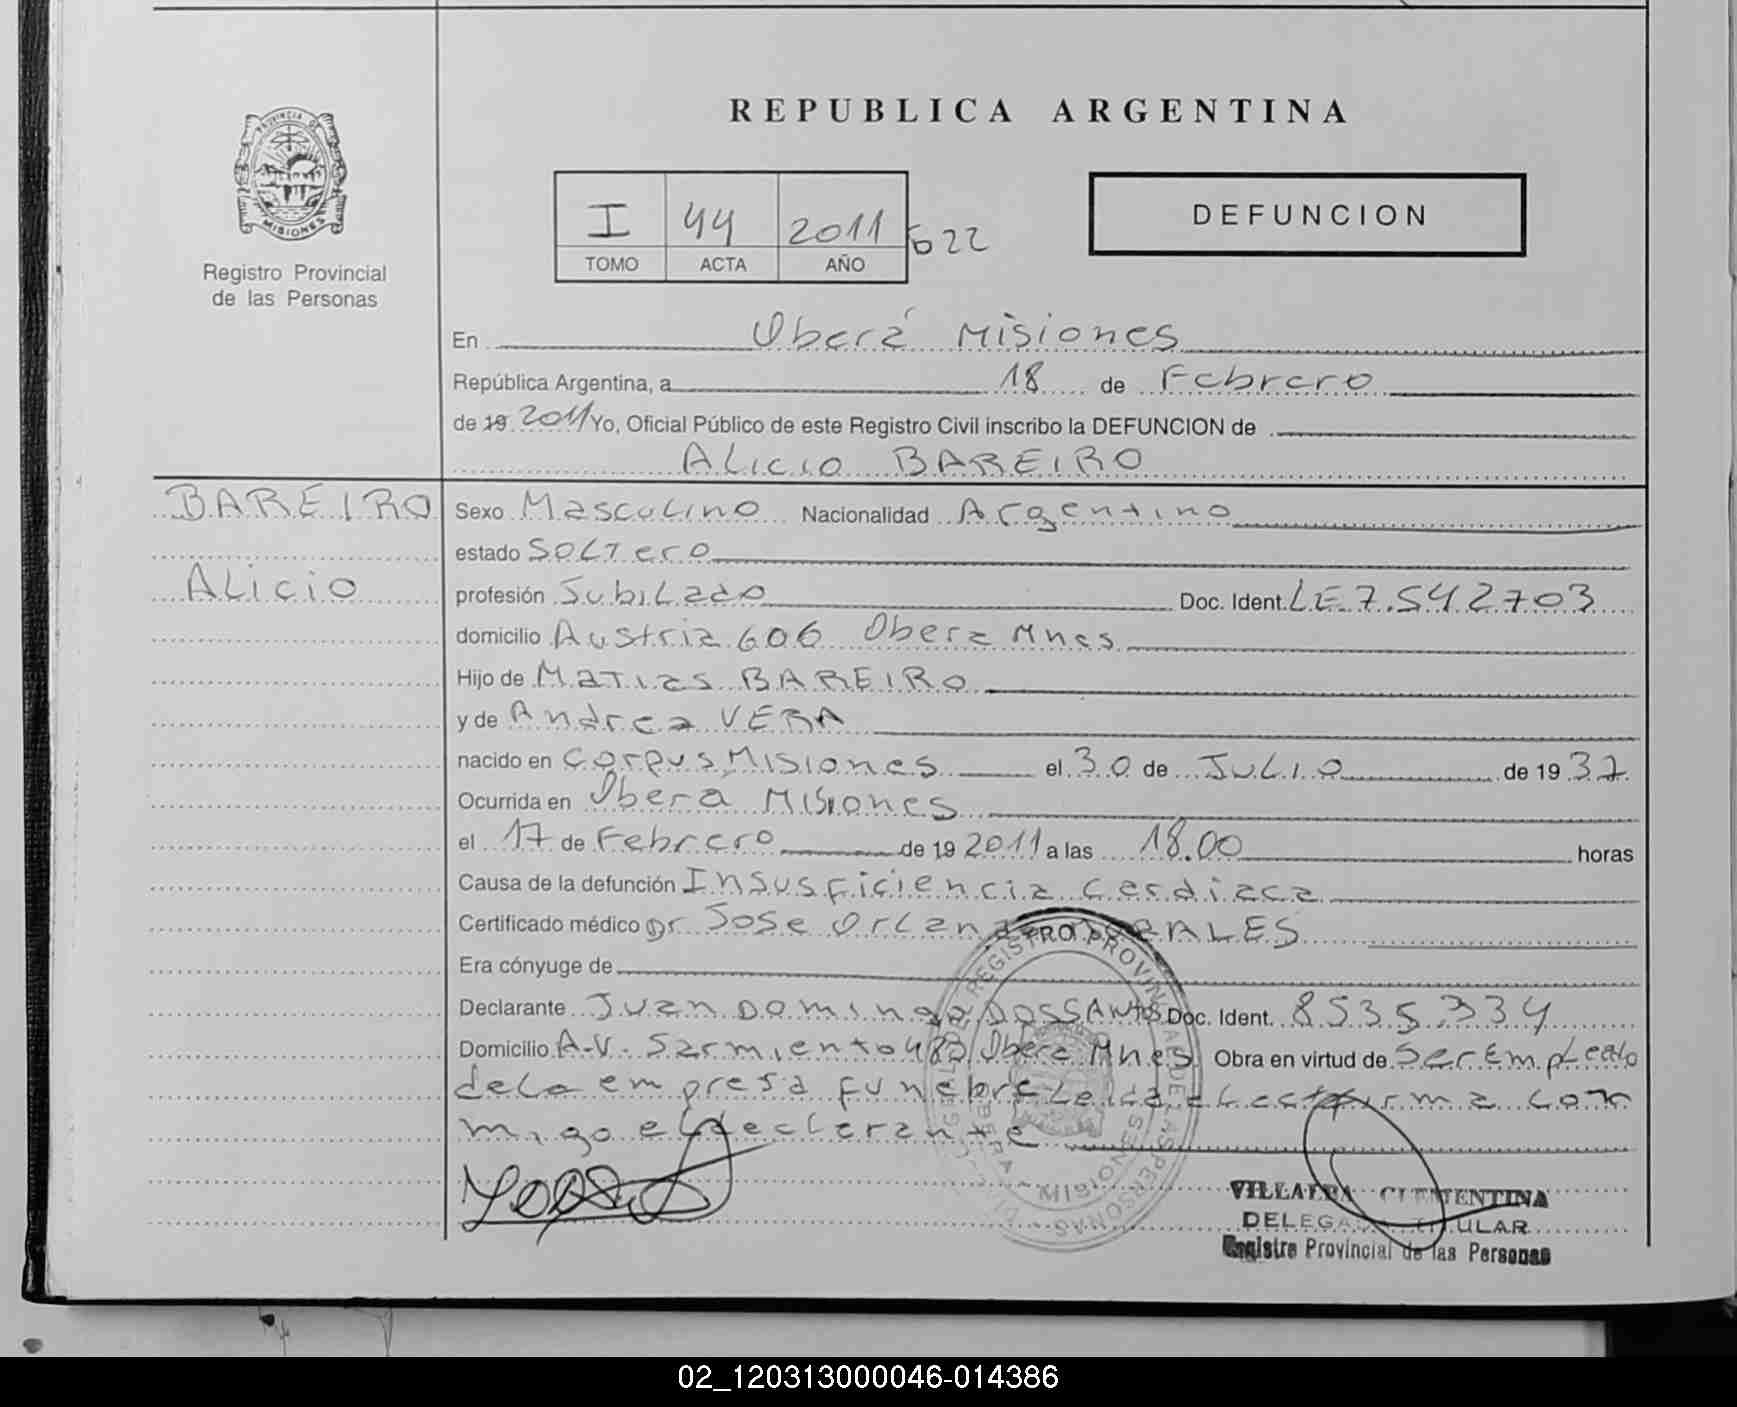 REPUBLICA ARGENTINA
PROVINCIA DE
MISIONES
Registro Provincial
de las Personas
I 44 2011 622
TOMO ACTA AÑO
DEFUNCION
En Oberá Misiones
República Argentina, a 18 de Febrero
de 19 2011 Yo, Oficial Público de este Registro Civil inscribo la DEFUNCION de
ALICIO BAREIRO
BAREIRO
ALICIO
Sexo Masculino Nacionalidad Argentino
estado SOLTERO
profesión Jubilado Doc. Ident. LE 7.542703
domicilio Austria 606 Obera Mnes
Hijo de Matias BAREIRO
y de Andrea VERA
nacido en Corpus Misiones el 30 de JULIO de 1937
Ocurrida en Oberá Misiones
el 17 de Febrero de 19 2011 a las 18.00 horas
Causa de la defunción Insusficiencia Cardiaca
Certificado médico Dr Jose Orlando
Era cónyuge de
Declarante Juan Domingo DOSSANTOS Doc. Ident. 8535.334
Domicilio A.V. Sarmiento 482 Obera Mnes Obra en virtud de Ser Empleado
dela empresa funebre Leida el acta firma con
migo el declarante
REGISTRO PROVINCIAL DE LAS PERSONAS
MISIONES
VILLALBA CLEMENTINA
DELEGADA TITULAR
Registro Provincial de las Personas
02_120313000046-014386